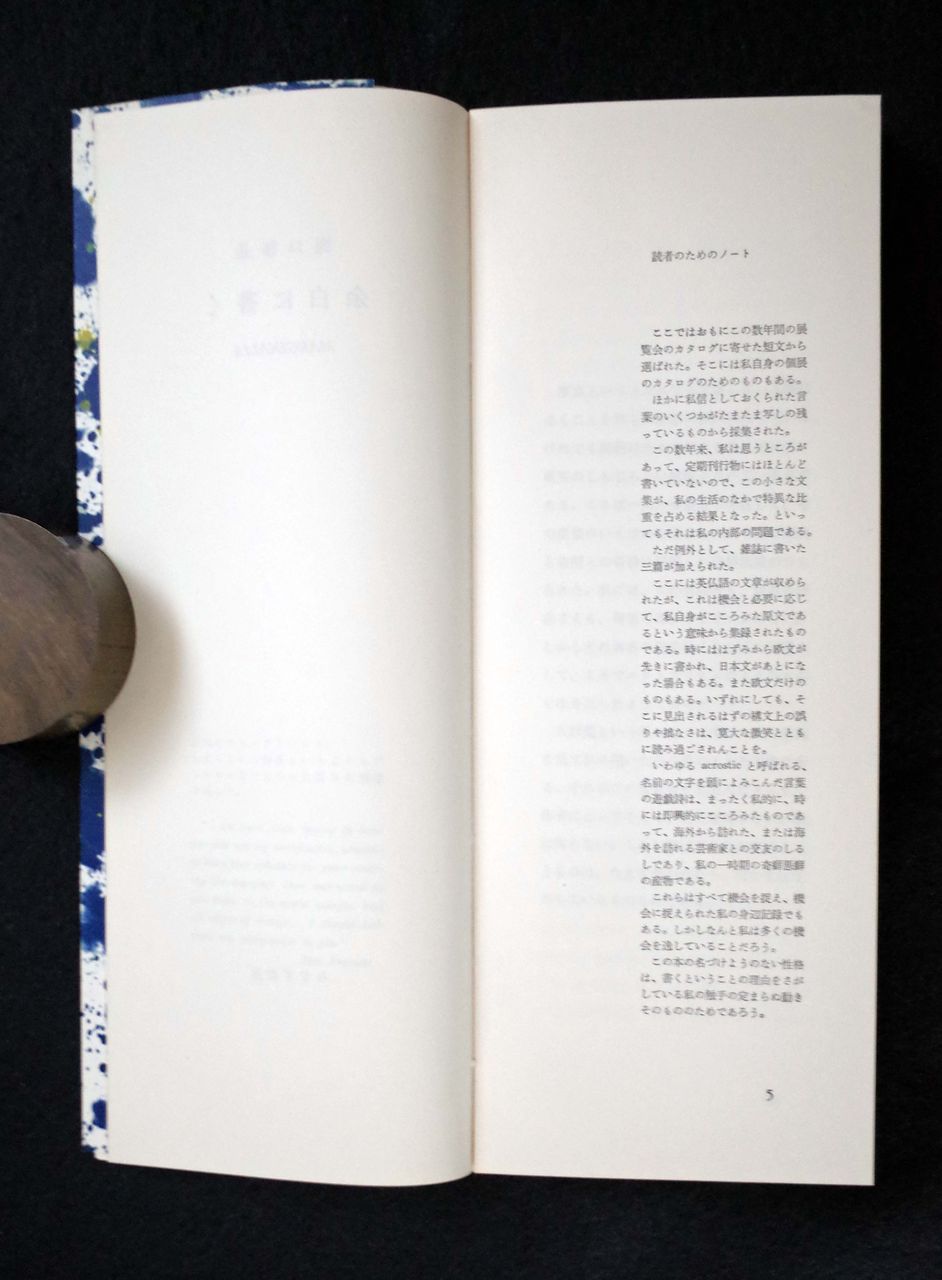 読者のためのノート
ここではおもにこの数年間の展
覧会のカタログに寄せた短文から
選ばれた。そこには私自身の個展
のカタログのためのものもある。
ほかに私信としておくられた言
葉のいくつかがたまたま写しの残
っているものから採集された。
この数年来、私は思うところが
あって、定期刊行物にはほとんど
書いていないので、この小さな文
集が、私の生活のなかで特異な比
重を占める結果となった。といっ
てもそれは私の内部の問題である。
ただ例外として、雑誌に書いた
三篇が加えられた。
ここには英仏語の文章が収めら
れたが、これは機会と必要に応じ
て、私自身がこころみた原文であ
るという意味から集録されたもの
である。時にははずみから欧文が
先きに書かれ、日本文があとにな
った場合もある。また欧文だけの
ものもある。いずれにしても、そ
こに見出されるはずの構文上の誤
りや拙なさは、寛大な微笑ととも
に読み過ごされんことを。
いわゆる acrostic と呼ばれる、
名前の文字を頭によみこんだ言葉
の遊戯詩は、まったく私的に、時
には即興的にこころみたものであ
って、海外から訪れた、または海
外を訪れる芸術家との交友のしる
しであり、私の一時期の奇癖悪癖
の産物である。
これらはすべて機会を捉え、機
会に捉えられた私の身辺記録でも
ある。しかしなんと私は多くの機
会を逸していることだろう。
この本の名づけようのない性格
は、書くということの理由をさが
している私の触手の定まらぬ動き
そのもののためであろう。
5
余白に書く
MARGINALIA